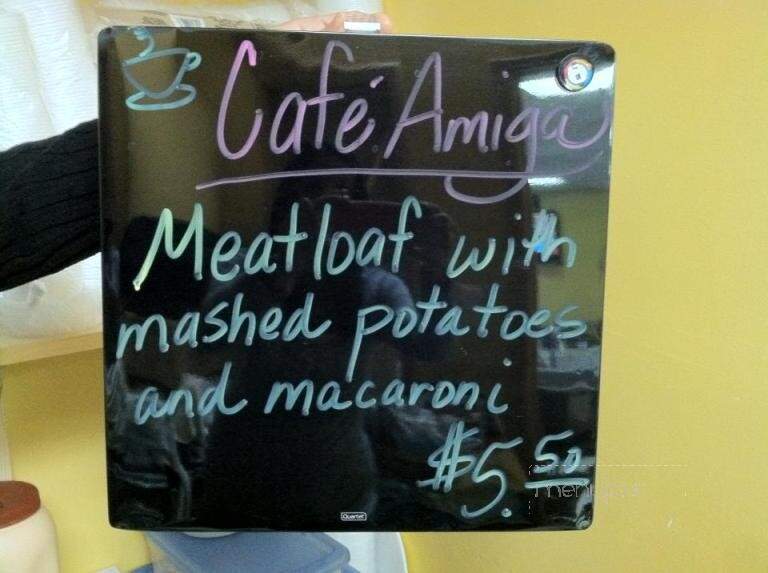 Café Amiga
Meatloaf with
mashed potatoes
and macaroni
$5.50
Quartet